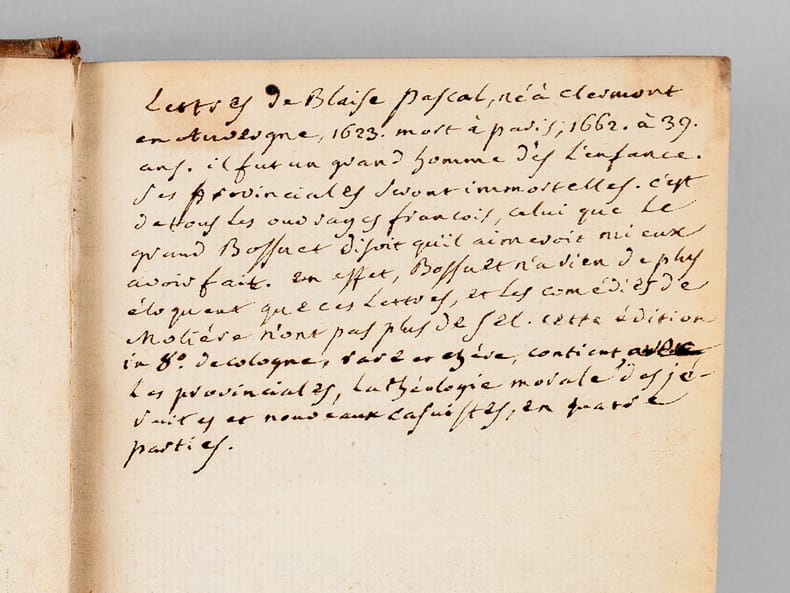 Lettres de Blaise pascal, né à clermont
en Auvergne, 1623. mort à paris, 1662. à 39.
ans. il fut un grand homme dès l'enfance.
ses provinciales seront immortelles. c'est
de tous les ouvrages francois, celui que le
grand Bossuet disoit qu'il aimeroit mieux
avoir fait. en effet, Bossuet n'a rien de plus
éloquent que ces Lettres, et les comédies de
Moliére n'ont pas plus de sel. cette édition
in 8º. de cologne, rare et chére, contient, avec
les provinciales, la théologie morale des jé-
suites et nouveaux casuistes, en quatre
parties.